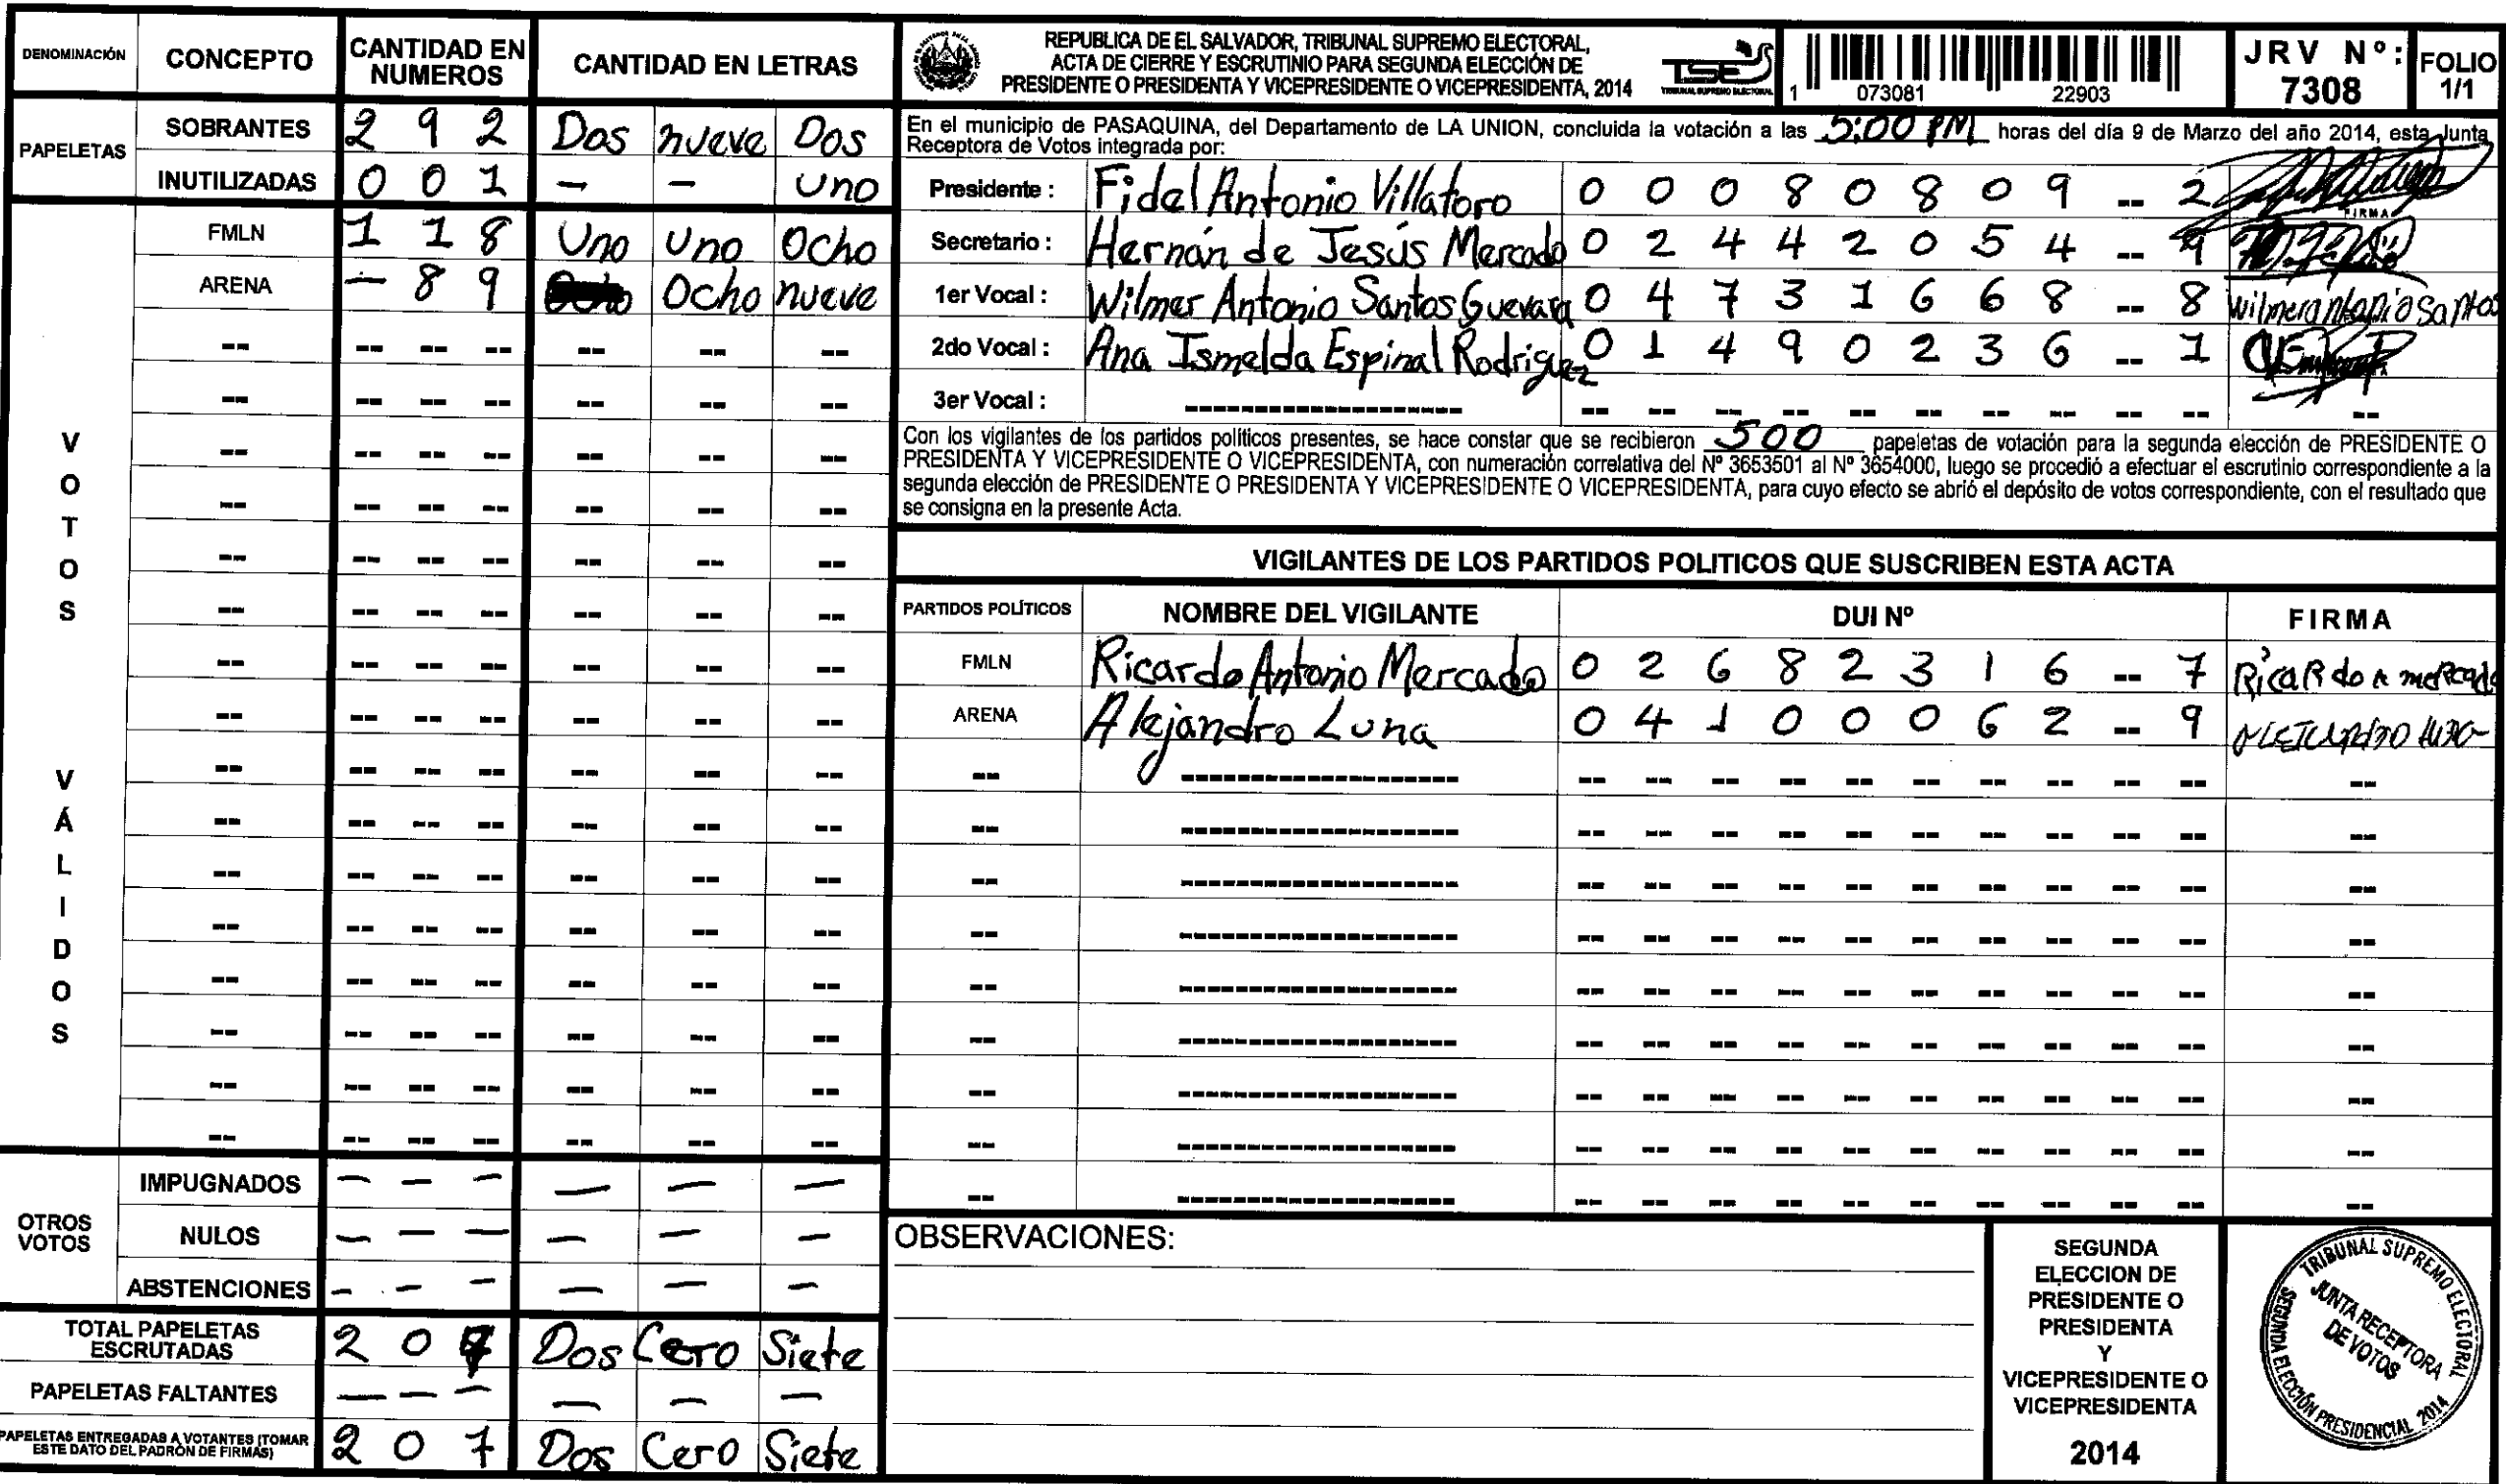 DENOMINACIÓN CONCEPTO CANTIDAD EN NUMEROS CANTIDAD EN LETRAS
PAPELETAS
SOBRANTES 2 9 2 Dos nueve Dos
INUTILIZADAS 0 0 1 - - uno
VOTOS VÁLIDOS
FMLN 1 1 8 Uno Uno Ocho
ARENA - 8 9 Ocho nueve
OTROS VOTOS
IMPUGNADOS - - - - - -
NULOS - - - - - -
ABSTENCIONES - - - - - -
TOTAL PAPELETAS ESCRUTADAS 2 0 7 Dos Cero Siete
PAPELETAS FALTANTES - - - - - -
PAPELETAS ENTREGADAS A VOTANTES (TOMAR ESTE DATO DEL PADRÓN DE FIRMAS) 2 0 7 Dos Cero Siete
REPUBLICA DE EL SALVADOR, TRIBUNAL SUPREMO ELECTORAL,
ACTA DE CIERRE Y ESCRUTINIO PARA SEGUNDA ELECCIÓN DE
PRESIDENTE O PRESIDENTA Y VICEPRESIDENTE O VICEPRESIDENTA, 2014
TSE
TRIBUNAL SUPREMO ELECTORAL
1 073081 22903
JRV Nº: 7308
FOLIO 1/1
En el municipio de PASAQUINA, del Departamento de LA UNION, concluida la votación a las 5:00 PM horas del día 9 de Marzo del año 2014, esta Junta
Receptora de Votos integrada por:
Presidente : Fidel Antonio Villatoro 0 0 0 8 0 8 0 9 -- 2
FIRMA
Secretario : Hernán de Jesús Mercado 0 2 4 4 2 0 5 4 -- 9
1er Vocal : Wilmer Antonio Santos Guevara 0 4 7 3 1 6 6 8 -- 8 Wilmer antonio Santos
2do Vocal : Ana Ismelda Espinal Rodriguez 0 1 4 9 0 2 3 6 -- 1
3er Vocal :
Con los vigilantes de los partidos políticos presentes, se hace constar que se recibieron 500 papeletas de votación para la segunda elección de PRESIDENTE O
PRESIDENTA Y VICEPRESIDENTE O VICEPRESIDENTA, con numeración correlativa del Nº 3653501 al Nº 3654000, luego se procedió a efectuar el escrutinio correspondiente a la
segunda elección de PRESIDENTE O PRESIDENTA Y VICEPRESIDENTE O VICEPRESIDENTA, para cuyo efecto se abrió el depósito de votos correspondiente, con el resultado que
se consigna en la presente Acta.
VIGILANTES DE LOS PARTIDOS POLITICOS QUE SUSCRIBEN ESTA ACTA
PARTIDOS POLÍTICOS NOMBRE DEL VIGILANTE DUI Nº FIRMA
FMLN Ricardo Antonio Mercado 0 2 6 8 2 3 1 6 -- 7 Ricardo A mercado
ARENA Alejandro Luna 0 4 1 0 0 0 6 2 -- 9
OBSERVACIONES:
SEGUNDA
ELECCION DE
PRESIDENTE O
PRESIDENTA
Y
VICEPRESIDENTE O
VICEPRESIDENTA
2014
TRIBUNAL SUPREMO ELECTORAL
JUNTA RECEPTORA
DE VOTOS
SEGUNDA ELECCIÓN PRESIDENCIAL 2014